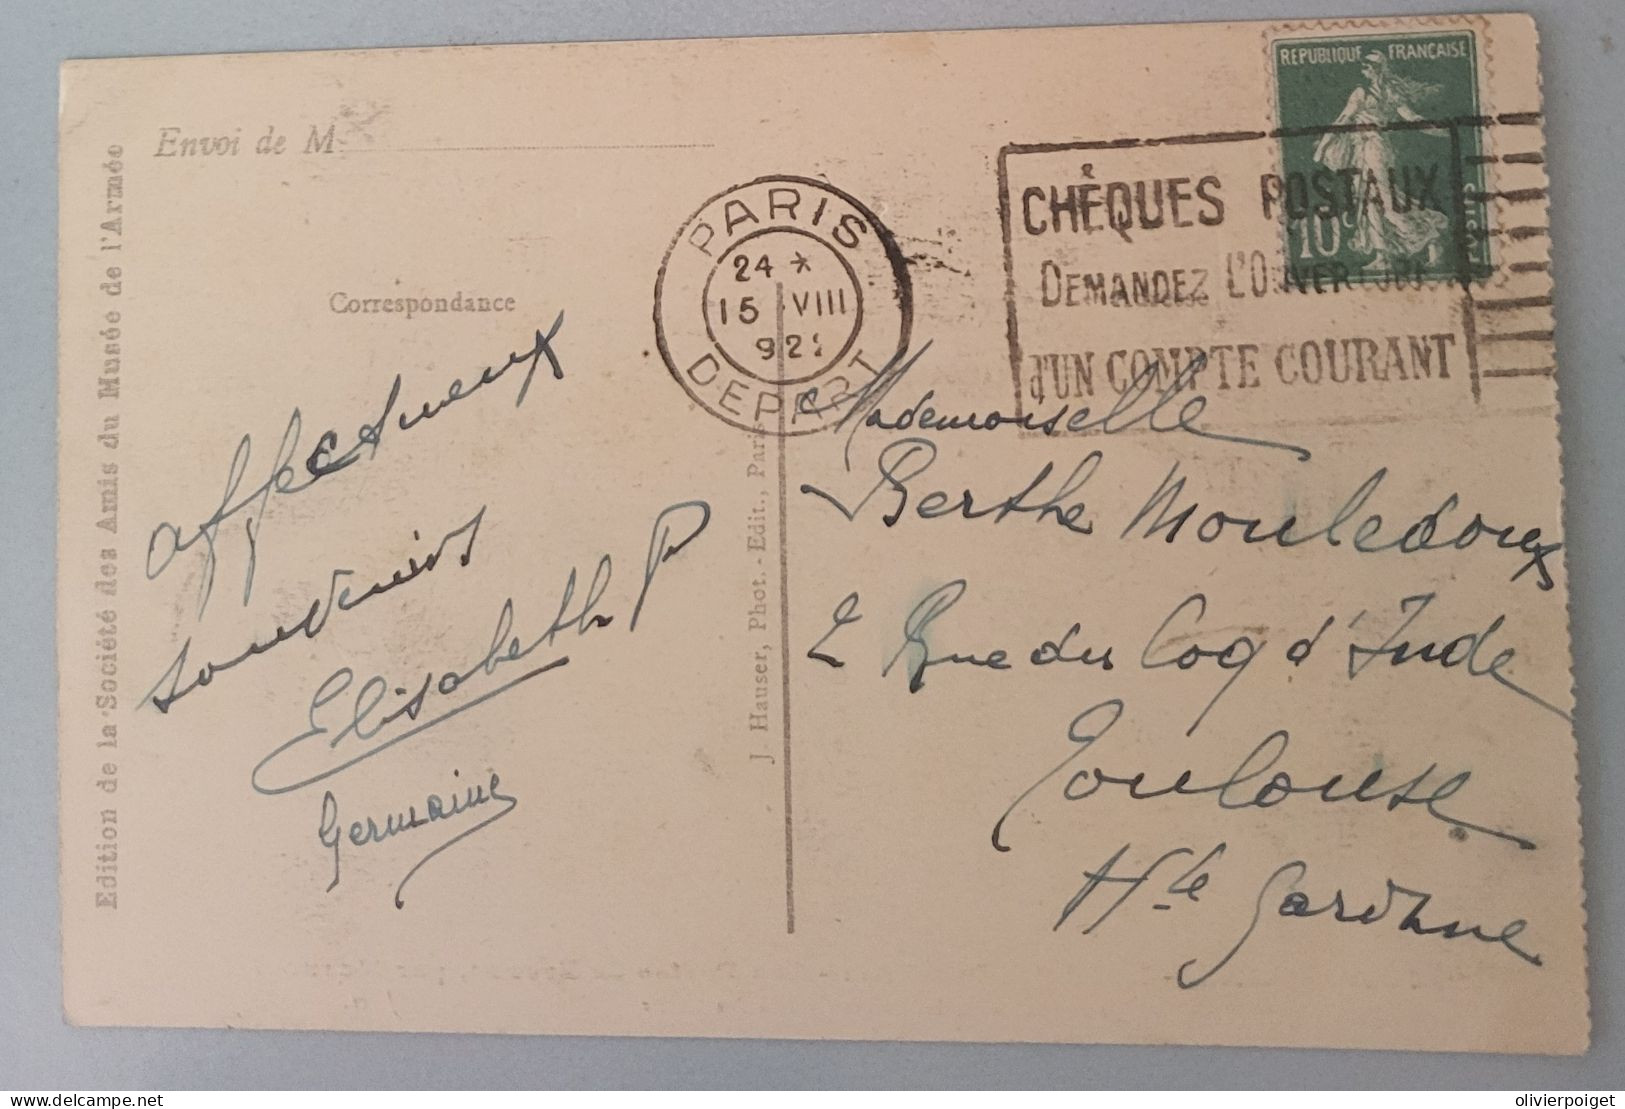 Edition de la Société des Amis du Musée de l'Armée
Envoi de M
Correspondance
affectueux
souvenirs
Elisabeth P
Germaine
J. Hauser, Phot.-Edit., Paris
PARIS
24 *
15 VIII
DEPART
CHÈQUES POSTAUX
DEMANDEZ L'OUVERTURE
d'UN COMPTE COURANT
REPUBLIQUE FRANÇAISE
10c
Mademoiselle
Berthe Mouledoux
2 Rue du Coq d'Inde
Toulouse
Hte Garonne
delcampe.net
olivierpoiget